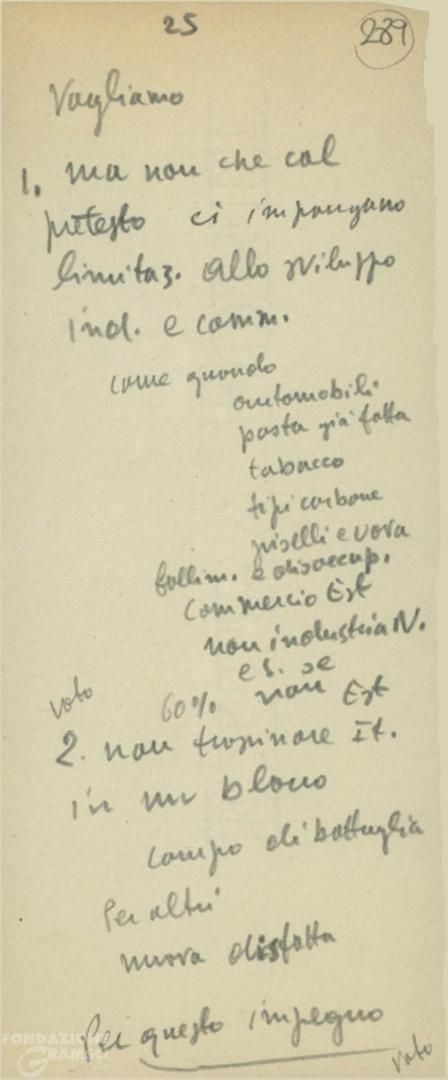 25
289
Vogliamo
1. ma non che col
pretesto ci impongano
limitaz. allo sviluppo
ind. e comm.
come quando
automobili.
pasta già fatta
tabacco
tipi carbone
piselli e uova
fallim. e disoccup.
Commercio Est
non industria N.
es. se
voto 60% non Est
2. non trascinare It.
in un blocco
campo di battaglia
Per altri
nuova disfatta
Per questo impegno
voto
FONDAZIONE
GRAMSCI